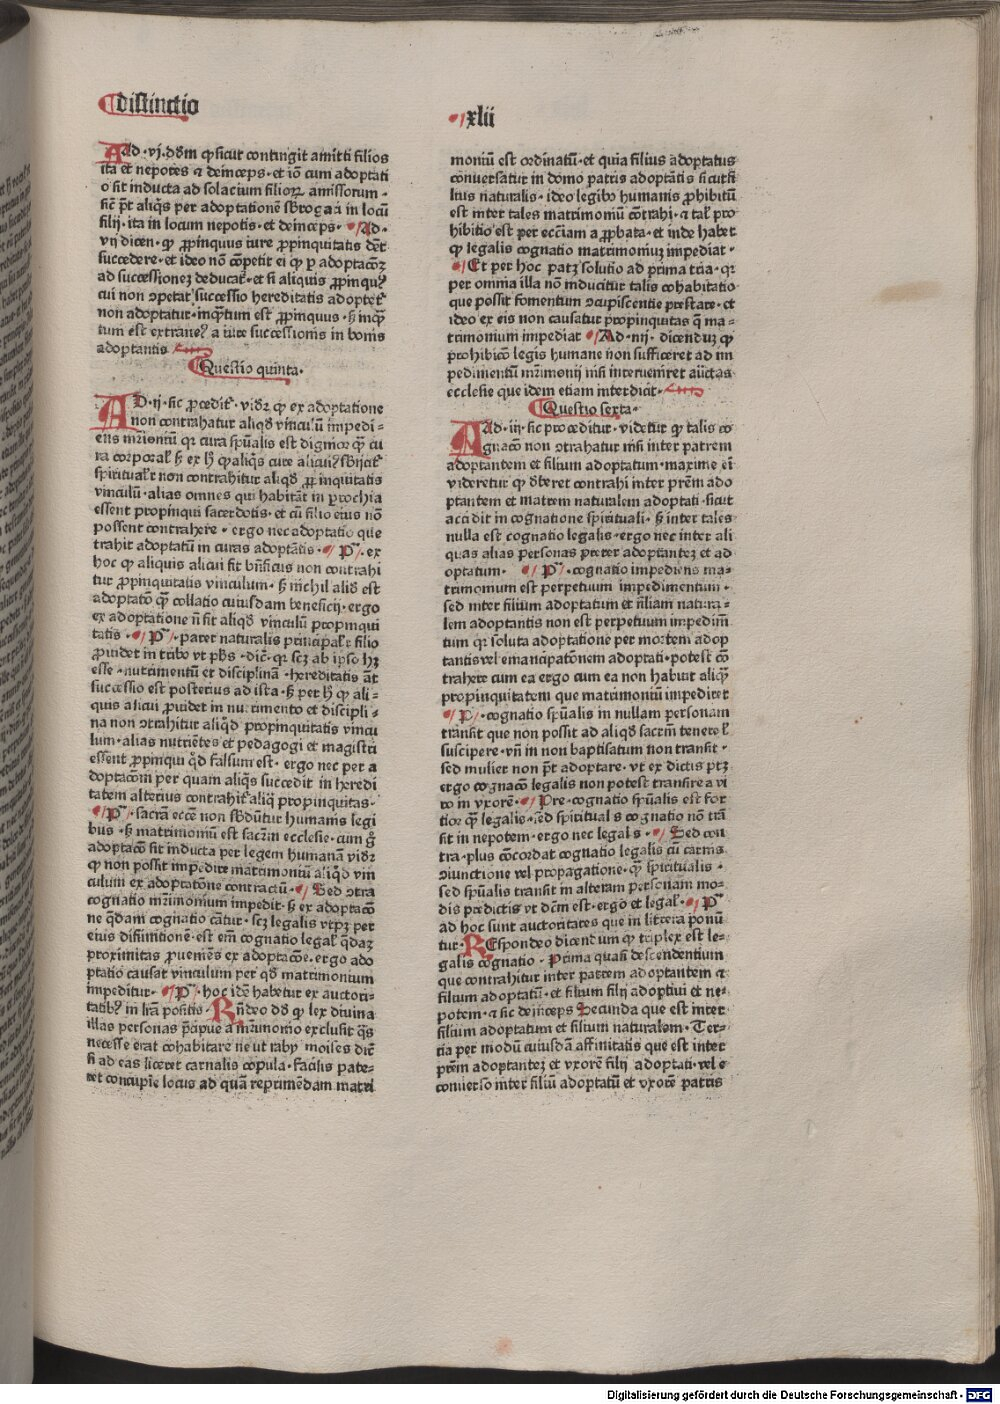 distinctio
xlii
Ad · vj · dōm ꝙ sicut contingit amitti filios
ita et nepotes ⁊ deinceps · et iō cum adoptati
o sit inducta ad solacium filioꝝ amissorum ·
sic p̄t aliq̄s per adoptationē sb̄rogari in locū
filij · ita in locum nepotis · et deinceps · Ad ·
vij dicen · ꝙ ꝓpinquus iure ꝓpinquitatis dēt
succedere · et ideo nō cōpetit ei ꝙ ꝑ adoptacōꝫ
ad successionez deducat̄ · et si aliquis ꝓpinquꝰ
cui non ꝯpetat successio hereditatis adoptet̄
non adoptatur · inq̄tum est ꝓpinquus · sꝫ inq̄
tum est extraneꝰ a iure successionis in bonis
adoptantis
Questio quinta ·
AD · ij · sic ꝓcedit̄ · vidr̄ ꝙ ex adoptatione
non contrahatur aliqd̄ vinculū impedi-
ens mr̄imoniū qꝛ cura sp̄ualis est dignior q̄ꝫ cu
ra corporal̄ sꝫ ex hͦ ꝙ aliq̄s cure alicuiꝰ sb̄ijcit̄
spiritualr̄ non contrahitur aliqd̄ ꝓpinquitatis
vinculū · alias omnes qui habitāt in ꝑrochia
essent propinqui sacerdotis · et cū filio eius nō
possent contrahere · ergo nec adoptatio que
trahit adoptatū in curas adoptātis · P̄ · ex
hoc ꝙ aliquis alicui fit bn̄ficus non contrahi
tur ꝓpinquitatis vinculum · sꝫ nichil aliud est
adoptatō q̄ꝫ collatio cuiusdam beneficij · ergo
ex adoptatione n̄ fit aliqd̄ vinculū propinqui
tatis · P̄ · pater naturalis principalr̄ filio
ꝓuidet in tribꝰ vt phs · dic̄ · qꝛ scꝫ ab ipso hꝫ
esse · nutrimentū et disciplinā · hereditatis āt
successio est posterius ad ista · sꝫ per hͦ ꝙ ali-
quis alicui ꝓuidet in nutrimento et discipli-
na non ꝯtrahitur aliqd̄ propinquitatis vincu
lum · alias nutriētes et pedagogi et magistri
essent ꝓpinqui qd̄ falsum est · ergo nec per a
doptacōm per quam aliq̄s succedit in heredi
tatem alterius contrahit̄ aliq̄ propinquitas ·
P̄ · sacrā eccē non sb̄dūtur humanis legi
bus · sꝫ matrimoniū est sacr̄m ecclesie · cum g̊
adoptacō sit inducta per legem humanā vidr̄
ꝙ non possit impedire matrimoniū aliqd̄ vin
culum ex adoptatōne contractū · Sed ꝯtra
cognatio mr̄imonium impedit · sꝫ ex adoptacō
ne q̄dam cognatio cātur · scꝫ legalis vt pꝫ per
eius difinitionē · est em̄ cognatio legal̄ q̄daꝫ
proximitas ꝓueniēs ex adoptacōe · ergo ado
ptatio causat vinculum per qd̄ matrimonium
impeditur · P̄ · hoc idē habetur ex auctori-
tatibꝰ in lr̄a positis · Rn̄deo dd̄ ꝙ lex diuina
illas personas p̄cipue a mr̄imonio exclusit q̄s
necesse erat cohabitare ne ut raby moises dic̄
si ad eas liceret carnalis copula · facilis pate-
ret concupīe locus ad quā reprimēdam matri
moniū est ordinatū · et quia filius adoptatus
conuersatur in domo patris adoptātis sicut fi
lius naturalis · ideo legibꝰ humanis ꝓhibitū
est inter tales matrimoniū cōtrahi · ⁊ tal̄ pro
hibitio est per eccīam aꝓbata · et inde habet
ꝙ legalis cognatio matrimoniuꝫ impediat ·
Et per hoc patꝫ solutio ad prima tria · qꝛ
per omnia illa nō inducitur talis cohabitatio
que possit fomentum ꝯcupiscentie prestare · et
ideo ex eis non causatur propinquitas q̄ ma-
trimonium impediat Ad · iiij · dicenduꝫ ꝙ
prohibicō legis humane non sufficeret ad im
pedimentū mr̄imonij nisi interueniret auctas
ecclesie que idem etiam interdicit ·
Questio sexta ·
Ad · iij · sic proceditur · videtur ꝙ talis co
gnacō non ꝯtrahatur nisi inter patrem
adoptantem et filium adoptatum · maxime eī
videretur ꝙ dēberet contrahi inter prēm ado
ptantem et matrem naturalem adoptati · sicut
accidit in cognatione spirituali · sꝫ inter tales
nulla est cognatio legalis · ergo nec inter ali
quas alias personas preter adoptanteꝫ et ad
optatum · P̄ · cognatio impediens ma-
trimonium est perpetuum impedimentum ·
sed inter filium adoptatum et filiam natura-
lem adoptantis non est perpetuum impedim̄
tum qꝛ soluta adoptatione per mortem adop
tantis vel emancipatōnem adoptati · potest cō
trahere cum ea ergo cum ea non habuit aliq̄
propinquitatem que matrimoniū impediret
P̄ · cognatio sp̄ualis in nullam personam
transit que non possit ad aliqd̄ sacrm̄ tenere l̄
suscipere · vn̄ in non baptisatum non transit ·
sed mulier non p̄t adoptare · vt ex dictis ptꝫ
ergo cognacō legalis non potest transire a vi
ro in vxorē · Pre · cognatio sp̄ualis est for
tior q̄ꝫ legalis · sed spiritualis cognatio nō trā
sit in nepotem · ergo nec legalis · Sed con
tra · plus cōcordat cognatio legalis cū carnis
ꝯiunctione vel propagatione · q̄ꝫ spiritualis ·
sed sp̄ualis transit in alteram personam mo-
dis predictis vt dc̄m est · ergo et legal̄ · P̄
ad hoc sunt auctoritates que in littera ponū
tur · REspondeo dicendum ꝙ triplex est le-
galis cognatio · Prima quasi descendentium
que contrahitur inter patrem adoptantem ⁊
filium adoptatū · et filium filij adoptiui et ne-
potem · ⁊ sic deinceps Secunda que est inter
filium adoptatum et filium naturalem · Ter-
tia per modū cuiusdā affinitatis que est inter
prēm adoptanteꝫ et vxorē filij adoptati · vel e
conuerso inter filiū adoptatū et vxorē patris
Digitalisierung gefördert durch die Deutsche Forschungsgemeinschaft - DFG